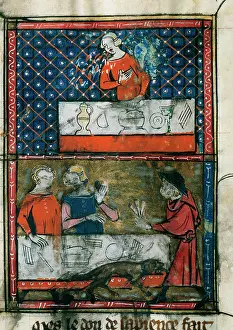 le don de sapience fait